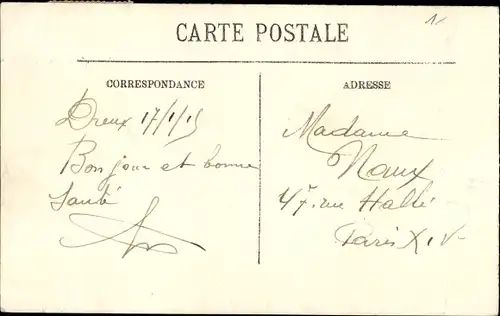 CARTE POSTALE
CORRESPONDANCE
Dreux 17/1/15
Bonjour et bonne
Santé
ADRESSE
Madame
Naux
47 rue Hallé
Paris XIV